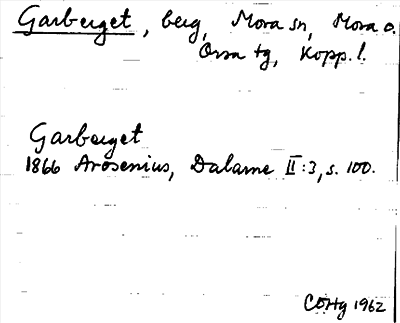 Garberget, berg, Mora sn, Mora o.
Orsa tg, Kopp. l.
Garberget
1866 Arosenius, Dalarne II:3, s. 100.
COHg 1962